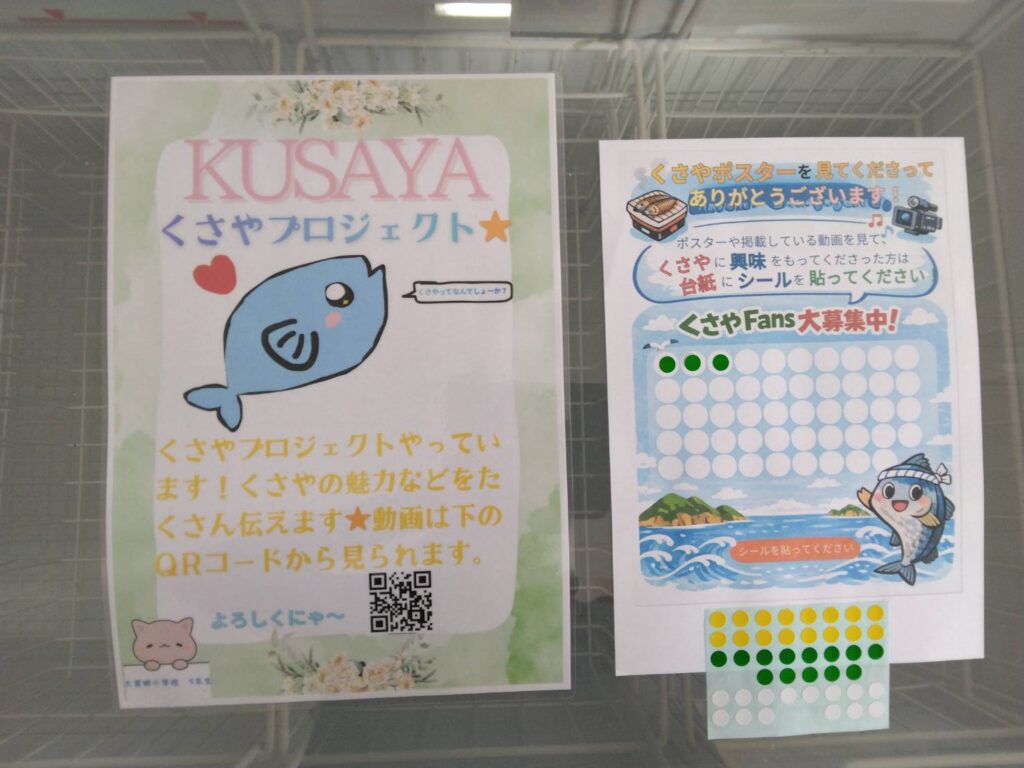 KUSAYA
くさやプロジェクト★
くさやってなんでしょーか？
くさやプロジェクトやってい
ます！くさやの魅力などをた
くさん伝えます★動画は下の
QRコードから見られます。
よろしくにゃ～
大賀郷小学校 5年生
くさやポスターを見てくださって
ありがとうございます！
ポスターや掲載している動画を見て、
くさやに興味をもってくださった方は
台紙にシールを貼ってください
くさやFans大募集中！
シールを貼ってください